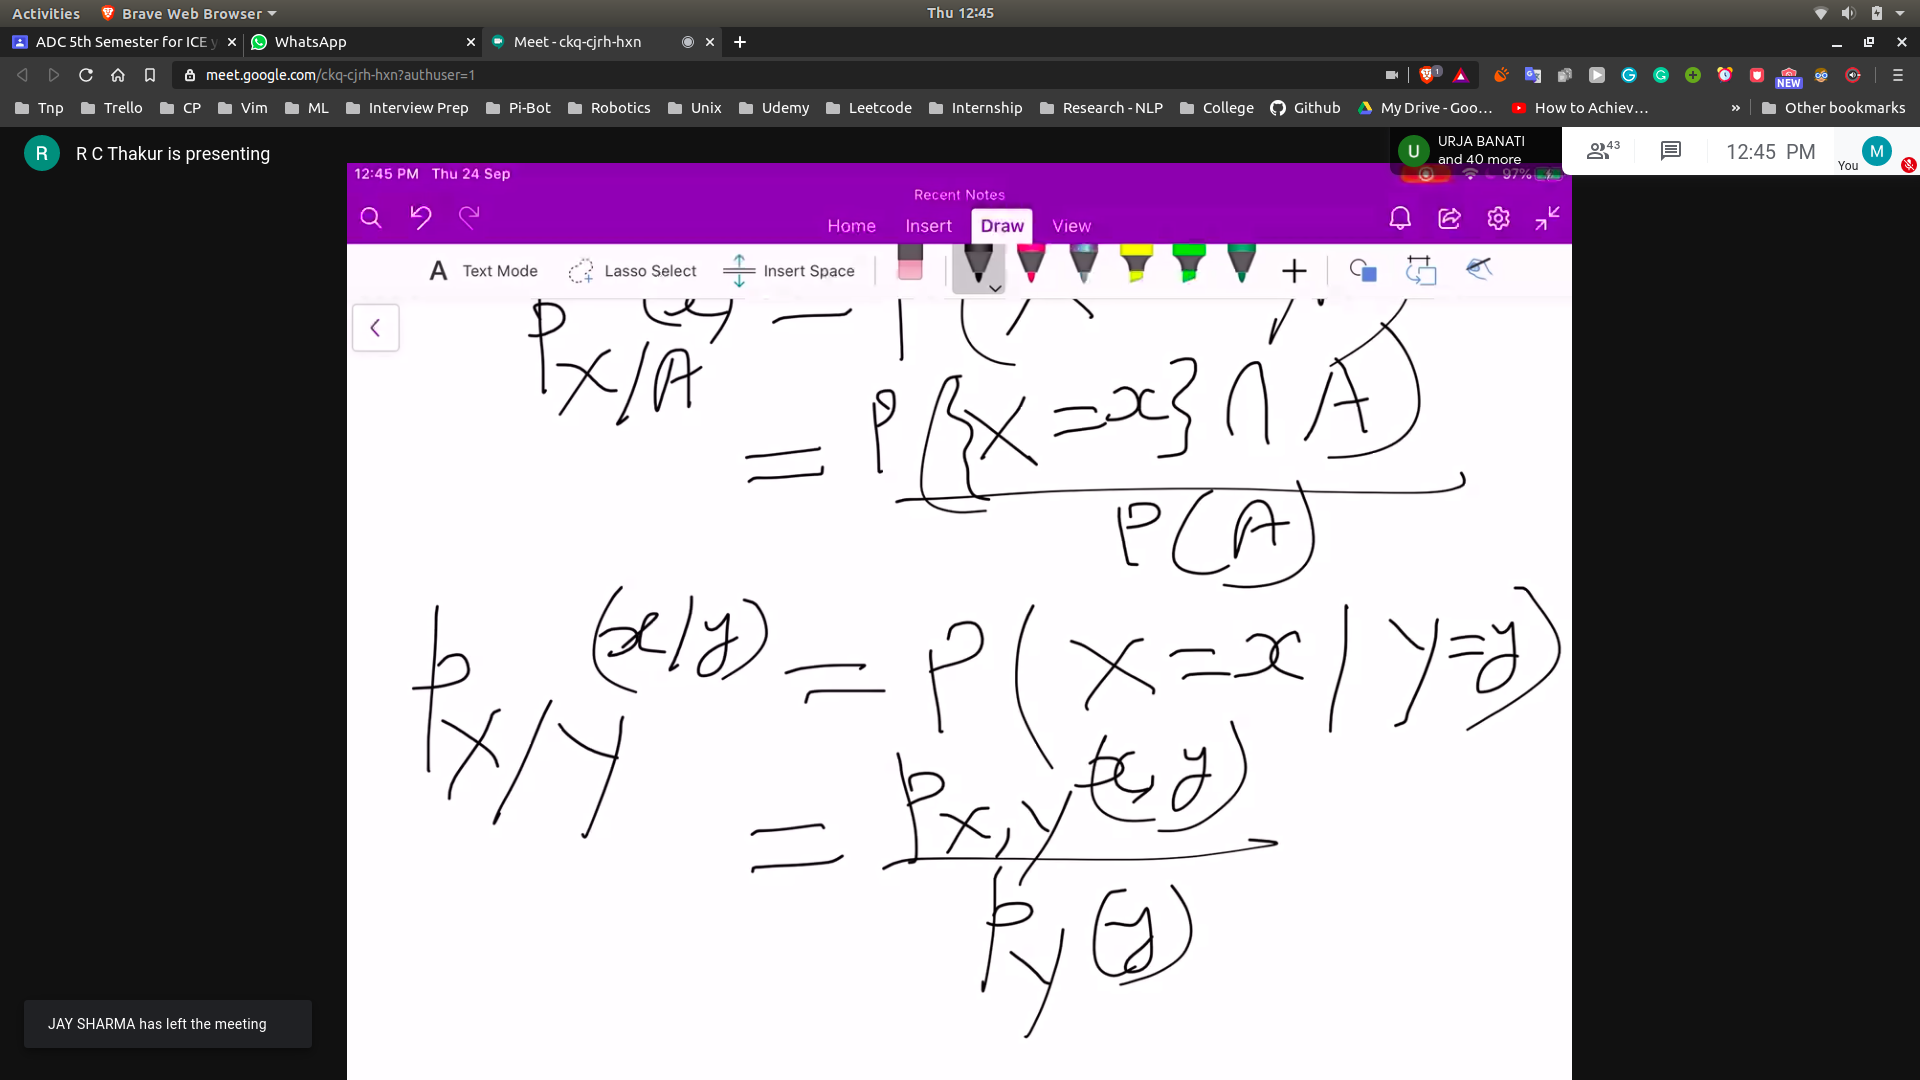 Activities Brave Web Browser Thu 12:45
ADC 5th Semester for ICE y WhatsApp Meet - ckq-cjrh-hxn
meet.google.com/ckq-cjrh-hxn?authuser=1 1 NEW
Tnp Trello CP Vim ML Interview Prep Pi-Bot Robotics Unix Udemy Leetcode Internship Research - NLP College Github My Drive - Goo... How to Achiev... » Other bookmarks
R R C Thakur is presenting
U URJA BANATI and 40 more 43 12:45 PM You M
12:45 PM Thu 24 Sep 97%
Recent Notes
Home Insert Draw View
A Text Mode Lasso Select Insert Space
P_{X/A}(x) =
= P({X = x} ∩ A) / P(A)
P_{X/Y}(x/y) = P(X = x | Y = y)
= P_{X,Y}(x, y) / P_Y(y)
JAY SHARMA has left the meeting